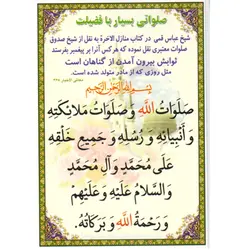 صلواتی بسیار با فضیلت
شیخ عباس قمی در کتاب منازل الاخرة به نقل از شیخ صدوق
صلوات معتبری نقل نموده که هر کس آنرا بر پیغمبر بفرستد
ثوابش بیرون آمدن از گناهان است
مثل روزی که از مادر متولد شده است.
بسم الله الرحمن الرحیم
صَلَوَاتُ اللَّهِ وَ صَلَوَاتُ مَلَائِكَتِهِ
وَ أَنْبِيَائِهِ وَ رُسُلِهِ وَ جَمِيعِ خَلْقِهِ
عَلَى مُحَمَّدٍ وَ آلِ مُحَمَّدٍ
وَ السَّلَامُ عَلَيْهِ وَ عَلَيْهِمْ
وَ رَحْمَةُ اللَّهِ وَ بَرَكَاتُهُ.